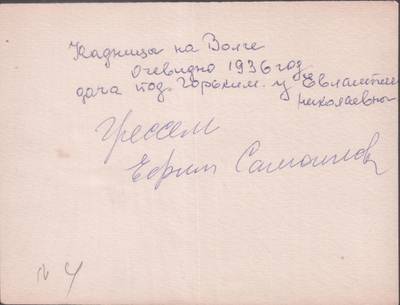 Кадницы на Волге
Очевидно 1936 год
дача под Горьким у Евлампии
Николаевны
Грессем
Ефрим Самойлов
№ 4